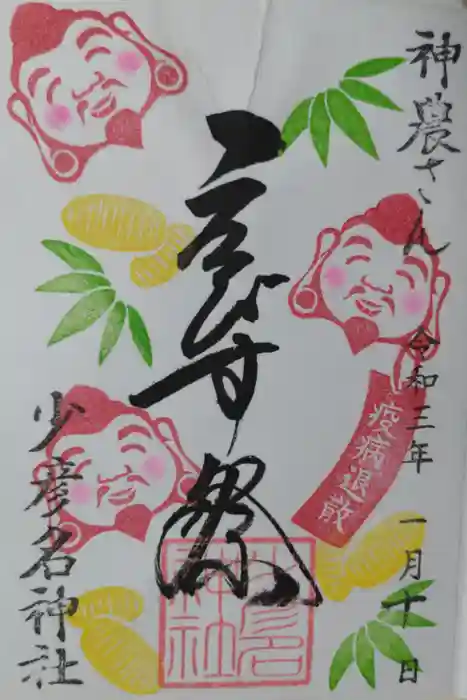 神農さん
令和三年 一月十日
疫病退散
ゑびす祭
少彦名
神社
少彦名神社